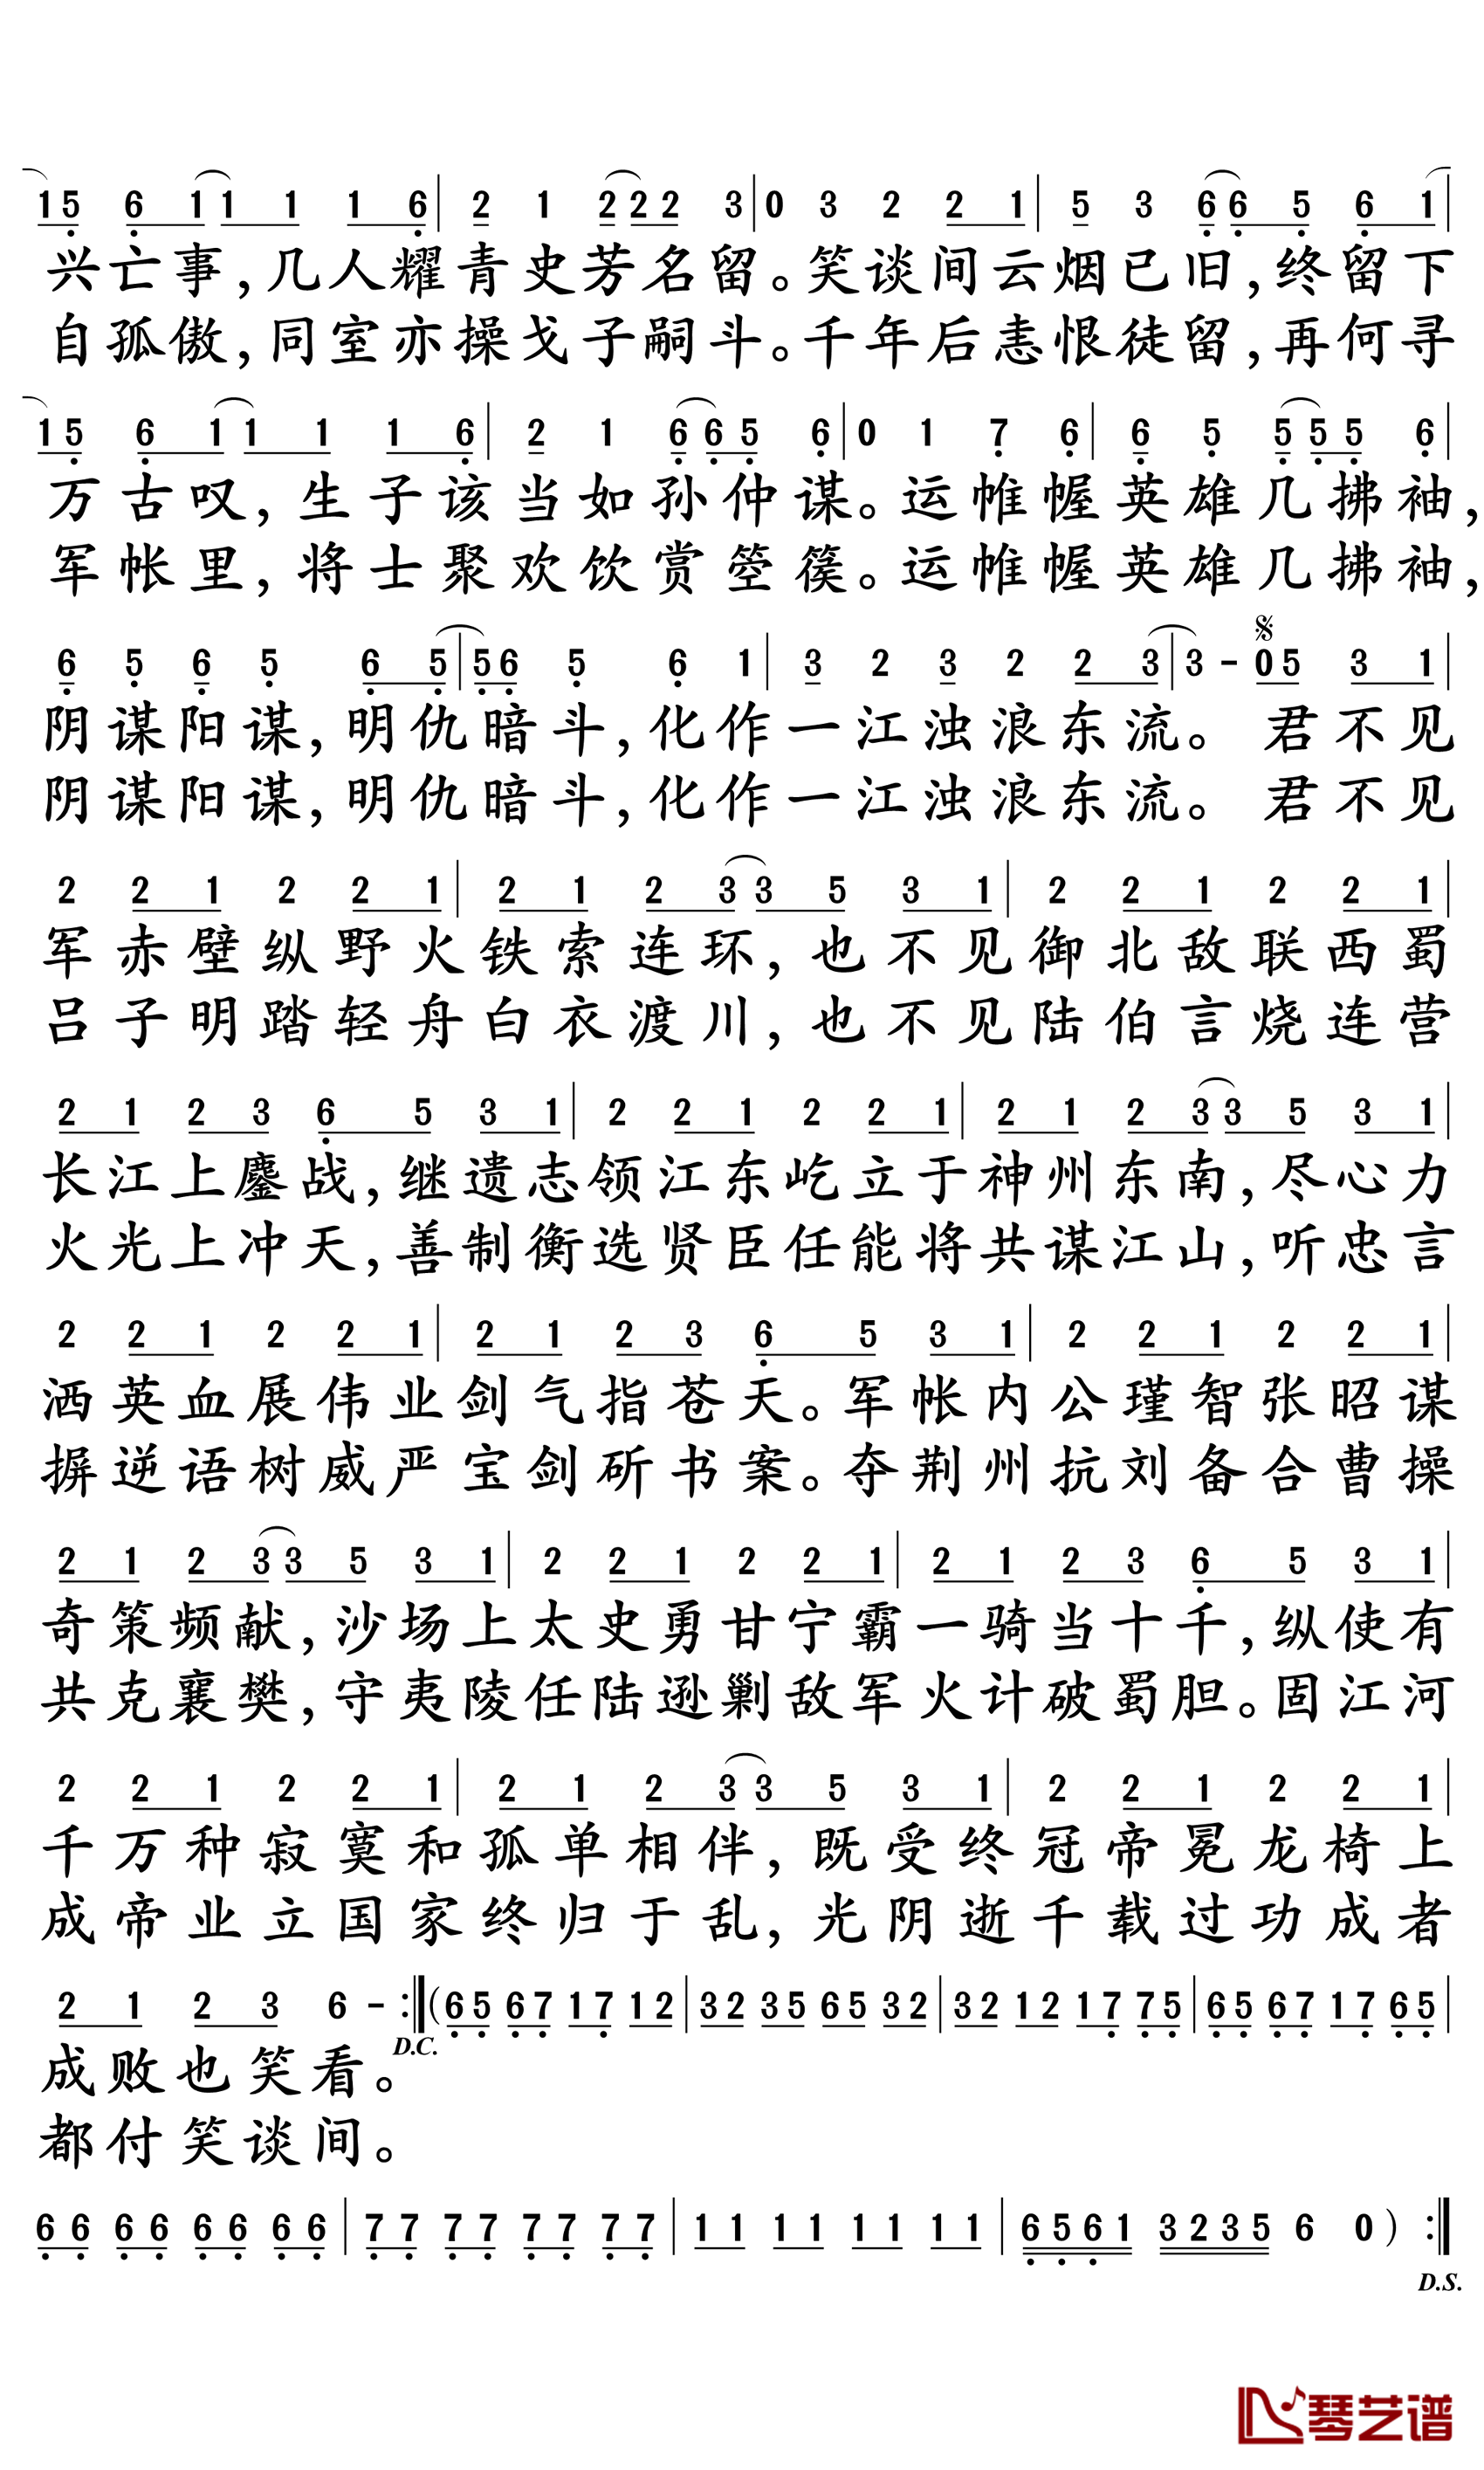 1 5 6 1 1 1 1 6 | 2 1 2 2 2 3 | 0 3 2 2 1 | 5 3 6 6 5 6 1 |
兴亡事,几人耀青史芳名留。笑谈间云烟已旧,终留下
自孤傲,同室亦操戈子嗣斗。千年后恚恨徒留,再何寻
1 5 6 1 1 1 1 6 | 2 1 6 6 5 6 | 0 1 7 6 | 6 5 5 5 5 6 |
万古叹,生子该当如孙仲谋。运帷幄英雄几拂袖,
军帐里,将士聚欢饮赏箜篌。运帷幄英雄几拂袖,
6 5 6 5 6 5 | 5 6 5 6 1 | 3 2 3 2 2 3 | 3 - 0 5 3 1 |
阴谋阳谋,明仇暗斗,化作一江浊浪东流。君不见
阴谋阳谋,明仇暗斗,化作一江浊浪东流。君不见
2 2 1 2 2 1 | 2 1 2 3 3 5 3 1 | 2 2 1 2 2 1 |
军赤壁纵野火铁索连环,也不见御北敌联西蜀
吕子明踏轻舟白衣渡川,也不见陆伯言烧连营
2 1 2 3 6 5 3 1 | 2 2 1 2 2 1 | 2 1 2 3 3 5 3 1 |
长江上鏖战,继遗志领江东屹立于神州东南,尽心力
火光上冲天,善制衡选贤臣任能将共谋江山,听忠言
2 2 1 2 2 1 | 2 1 2 3 6 5 3 1 | 2 2 1 2 2 1 |
洒英血展伟业剑气指苍天。军帐内公瑾智张昭谋
摒逆语树威严宝剑斫书案。夺荆州抗刘备合曹操
2 1 2 3 3 5 3 1 | 2 2 1 2 2 1 | 2 1 2 3 6 5 3 1 |
奇策频献,沙场上太史勇甘宁霸一骑当十千,纵使有
共克襄樊,守夷陵任陆逊剿敌军火计破蜀胆。固江河
2 2 1 2 2 1 | 2 1 2 3 3 5 3 1 | 2 2 1 2 2 1 |
千万种寂寞和孤单相伴,既受终冠帝冕龙椅上
成帝业立国家终归于乱,光阴逝千载过功成者
2 1 2 3 6 - :| (6 5 6 7 1 7 1 2 | 3 2 3 5 6 5 3 2 | 3 2 1 2 1 7 7 5 | 6 5 6 7 1 7 6 5 |
D.C.
成败也笑看。
都付笑谈间。
6 6 6 6 6 6 6 6 | 7 7 7 7 7 7 7 7 | 1 1 1 1 1 1 1 1 | 6 5 6 1 3 2 3 5 6 0 ) :|
D.S.
琴艺谱